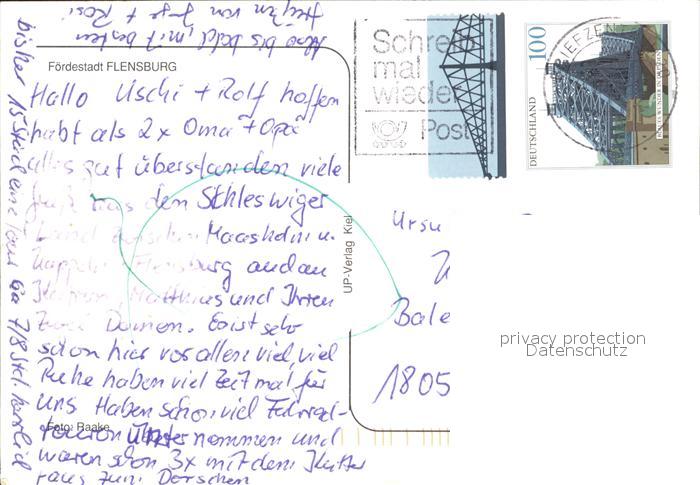 Also bis bald, mit besten
Grüßen von Inge + Rosi
Fördestadt FLENSBURG
Hallo Uschi + Rolf hoffen
habt als 2x Oma + Opa
alles gut überstanden viele
Grüße aus den Schleswiger
Land zwischen Maasholm u.
Kappeln Flensburg und an
Matthias und Ihren
Zwei Damen. Es ist sehr
schön hier vor allen viel, viel
Ruhe haben viel Zeit mal für
uns Haben schon viel Fahrrad-
touren unternommen und
waren schon 3x mit dem Kutter
raus zum Dorschen
bisher 15 Stück eine Tour ca 7/8 Std. herrlich
Foto: Raake
UP-Verlag Kiel
Schreib
mal
wieder
Post
100
DEUTSCHLAND
Ursu
Bale
1805
privacy protection
Datenschutz